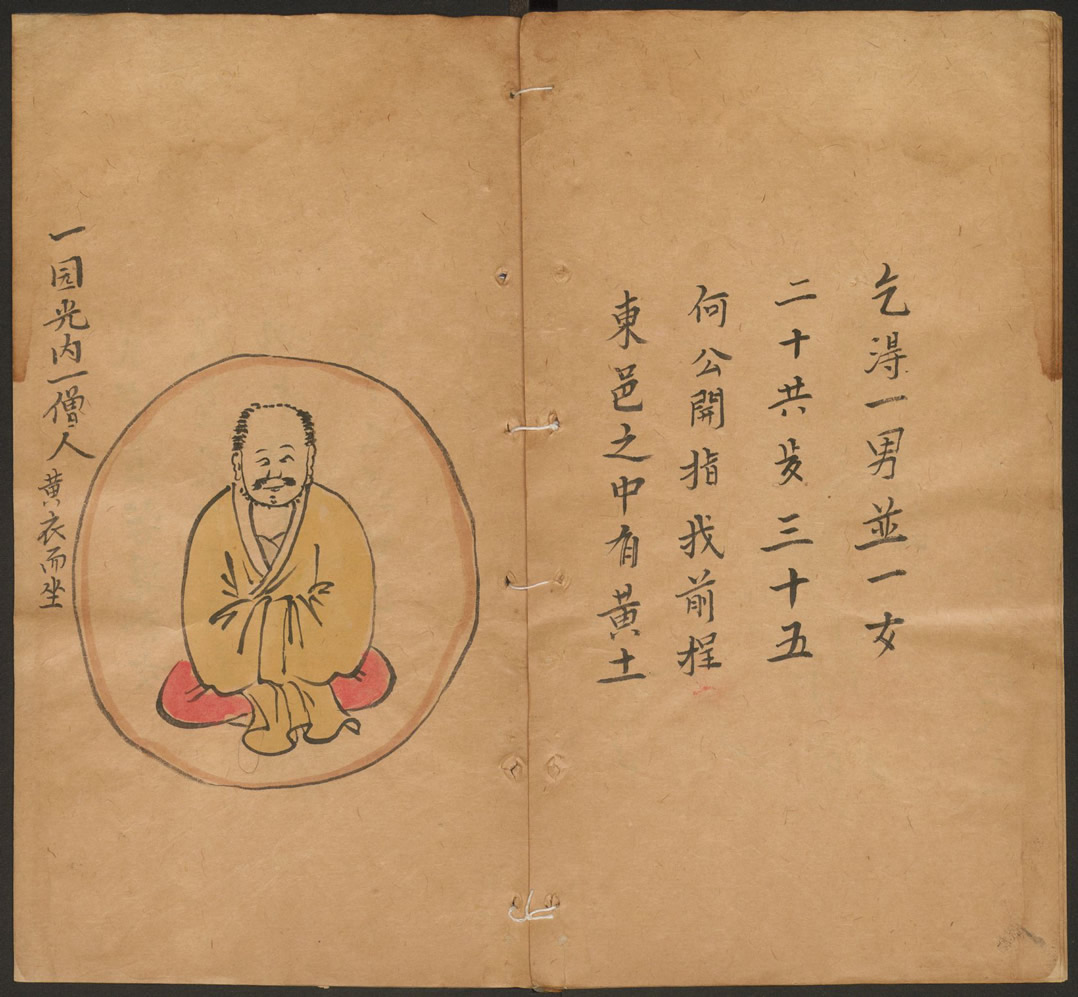 乞淂一男並一女
二十共岁三十五
何公開指找前程
東邑之中有黃土
一园光内一僧人
黄衣而坐